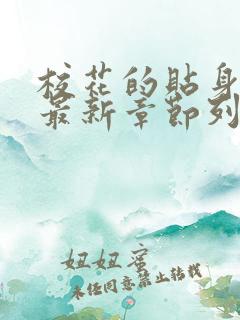 校花的贴身
最新章节列
妞妞蜜
未经同意禁止转载